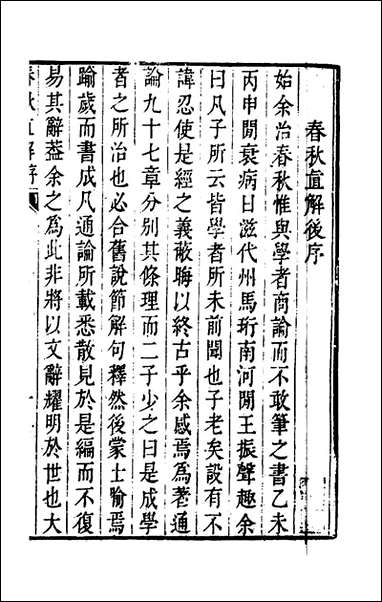 春秋直解後序
始余治春秋惟與學者商論而不敢筆之書乙未
丙申閒衰病日滋代州馬珩南河閒王振聲趣余
曰凡子所云皆學者所未前聞也子老矣設有不
諱忍使是經之義蔽晦以終古乎余感焉為著通
論九十七章分別其條理而二子少之曰是成學
者之所治也必合舊說節解句釋然後蒙士喻焉
踰歲而書成凡通論所載悉散見於是編而不復
易其辭葢余之為此非將以文辭耀明於世也大
春秋直解序